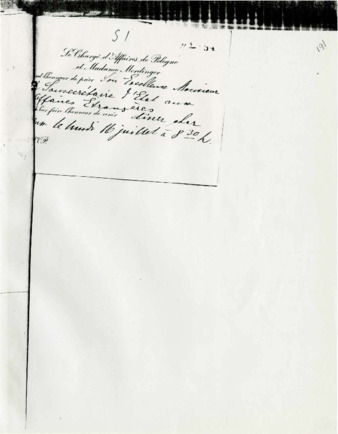 S1
191
Le Chargé d'Affaires de Pologne
et Madame
l'honneur de prier Son Excellence Monsieur
Soussecrétaire d'Etat aux
ffaires Etrangères
faire l'honneur de venir dîner chez
le lundi 16 juillet à 8 30 h.